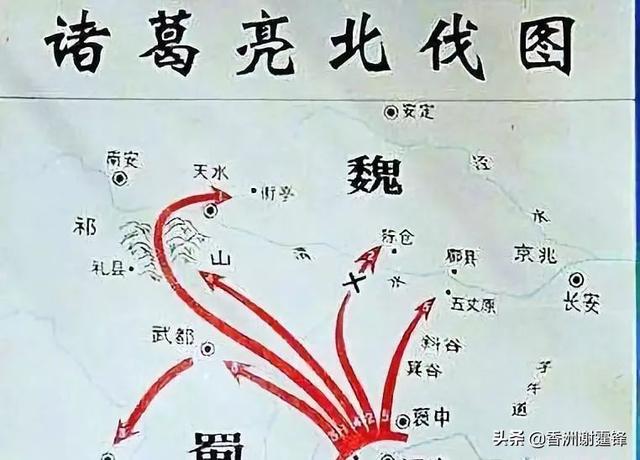 诸葛亮北伐图
安定
南安
天水
街亭
魏
泾
水
祁
山
陈仓
郿县
京兆
渭
水
礼县
五丈原
长安
武都
斜谷
箕谷
子午道
褒中
蜀
头条 @香洲谢霆锋